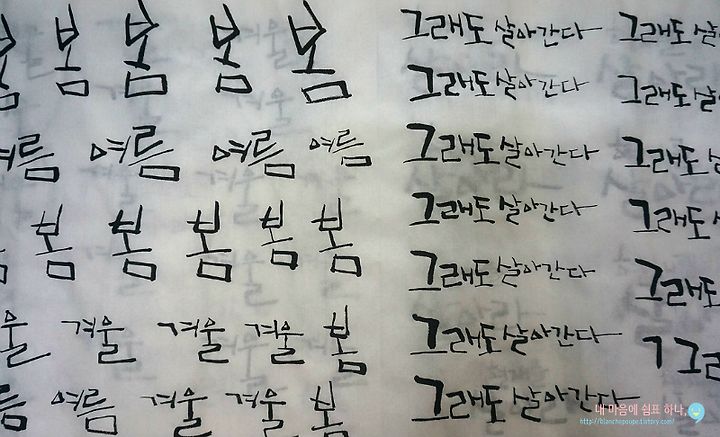 봄 봄 봄 봄 봄
여름 여름 여름 여름
봄 봄 봄 봄 봄
울 겨울 겨울 겨울 봄
름 여름 겨울 겨울 봄
그래도 살아간다
그래도 살아간다
그래도 살아간다
그래도 살아간다
그래도 살아간다
그래도 살아간다
그래도 살아간다
그래도 살
그래도 살
그래도
그래도
그래
그래
내 마음에 쉼표 하나,
http://blanchepoupe.tistory.com/